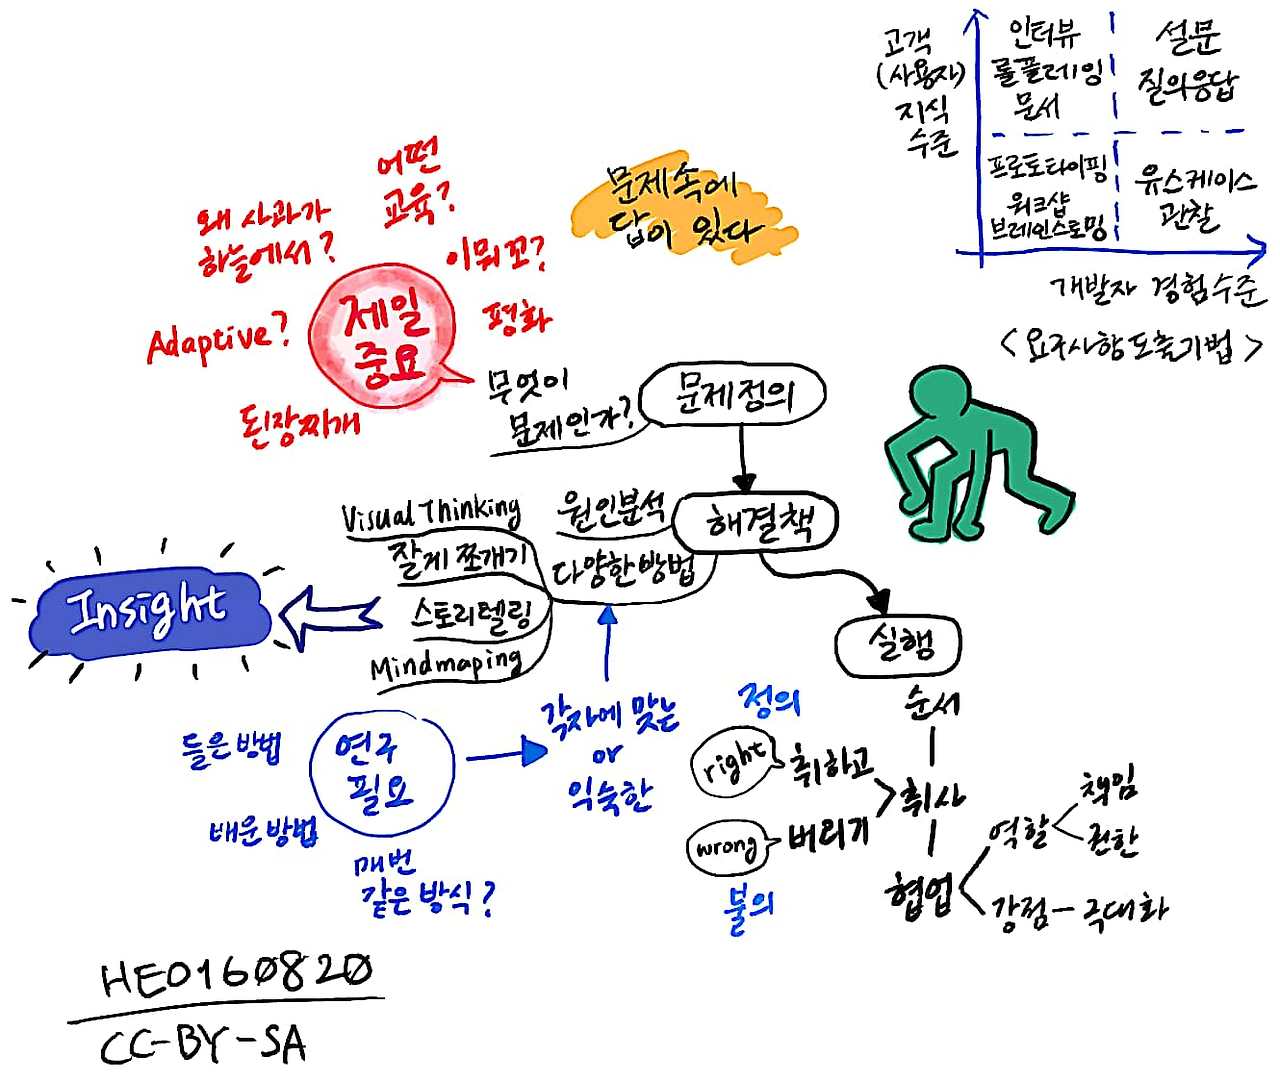 고객
(사용자)
지식
수준
인터뷰
롤플레잉
문서
설문
질의응답
프로토타이핑
워크샵
브레인스토밍
유스케이스
관찰
개발자 경험수준
<요구사항도출기법>
문제속에
답이 있다
어떤
교육?
왜 사과가
하늘에서?
이뭐꼬?
제일
중요
평화
Adaptive?
된장찌개
무엇이
문제인가?
문제정의
해결책
원인분석
다양한방법
Visual Thinking
잘게 쪼개기
스토리텔링
Mindmaping
Insight
실행
순서
취사
협업
정의
right
취하고
wrong
버리기
불의
역할
책임
권한
강점 - 극대화
각자에 맞는
or
익숙한
연구
필요
들은방법
배운방법
매번
같은방식?
HE0160820
CC-BY-SA